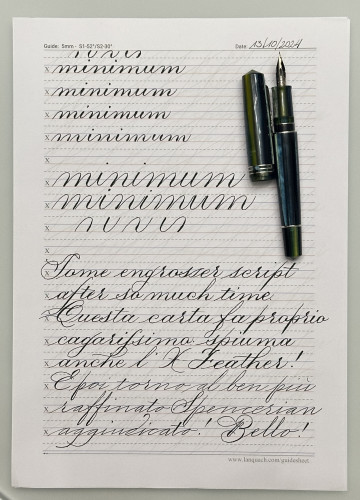 Guide: 5mm - S1-52°/S2-30° Date: 13/10/2024
minimum
minimum
minimum
minimum
minimum
minimum
Some engrosser script
after so much time.
Questa carta fa proprio
cagarissimo, spiuma
anche l' X Feather!
E poi torno al ben più
raffinato Spencerian
aggiudicato! Bello!
www.lanquach.com/guidesheet